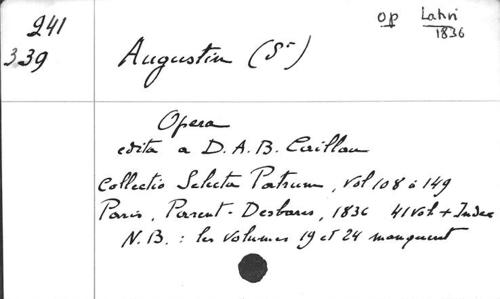 241
339
op Latin
1836
Augustin (St)
Opera
edita a D.A.B. Caillau
Collectio Selecta Patrum, vol 108 à 149
Paris, Parent-Desbares, 1836 41 vol + Index
N.B. : les volumes 19 et 24 manquent